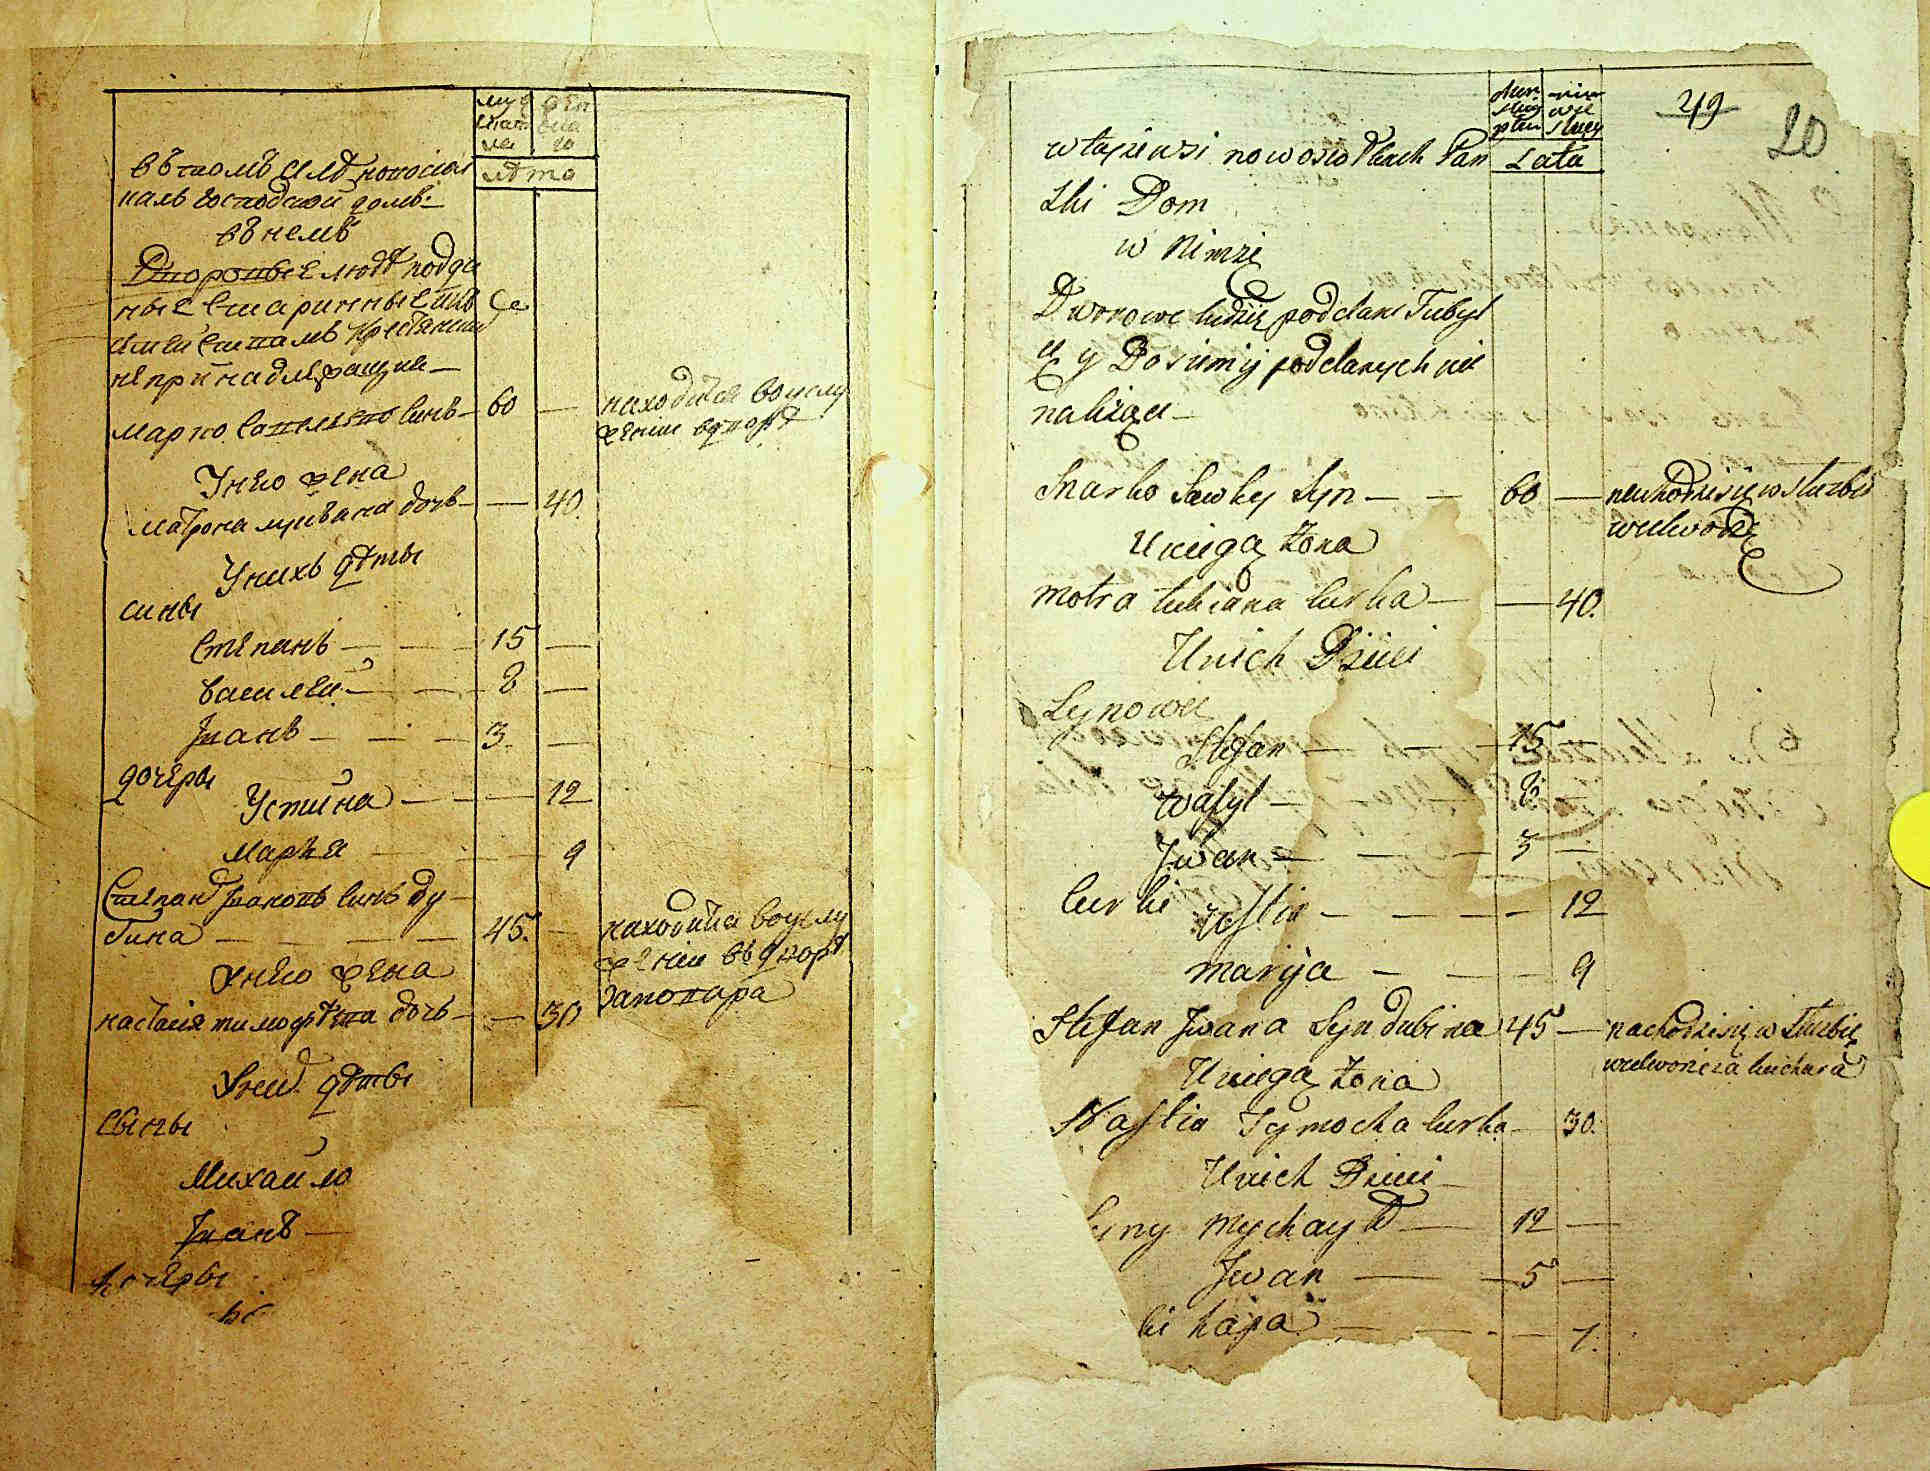 муж
женска
го
лѣта
въ томъ селѣ новосіол
кахъ господской домъ
въ немъ
Дворовые люде подда
ные старинные
крестьянъ
не принадлежащие
Марко Савельевъ синъ — 60 — находится в услу
жении въ дворѣ
У него жена
Матрона Лукьяна дочь — — 40
У нихъ дѣты
сины
Степанъ — 15 —
Василей — 8 —
Иванъ — 3 —
дочеры
Устина — — 12
Марья — — 9
Степанъ Ивановъ синъ Ду
бина — 45 — находится в услу
жении въ дворѣ
за повара
У него жена
Настасия Тимофѣева дочь — — 30
У них дѣты
сыны
Михайло
Иванъ —
дочеры
49
20
Lata
w tey ze wsi nowosiołkach Pan
ski Dom
w Nimże
Dworowe ludzie poddane Tubyl
cy
należące —
Marko Sawky Syn — — 60 — nachodzi się w służbie
we dworze
U niego żona
Motra Lukiana Curka — — 40.
U nich Dzieci
Synowie
Stefan — — 15 —
Wasyl — — 8 —
Jwan — — 3 —
Curki
Ustia — — — 12
Marija — — — 9
Stefan Jwana Syn Dubina 45 — nachodzi się w służbie
we dworze za kuchara
U niego żona
Nastia Tymocha Curka — 30.
U nich Dzieci
Syny Mychayło — 12 —
Jwan — 5 —
ki hapa — — — 7.